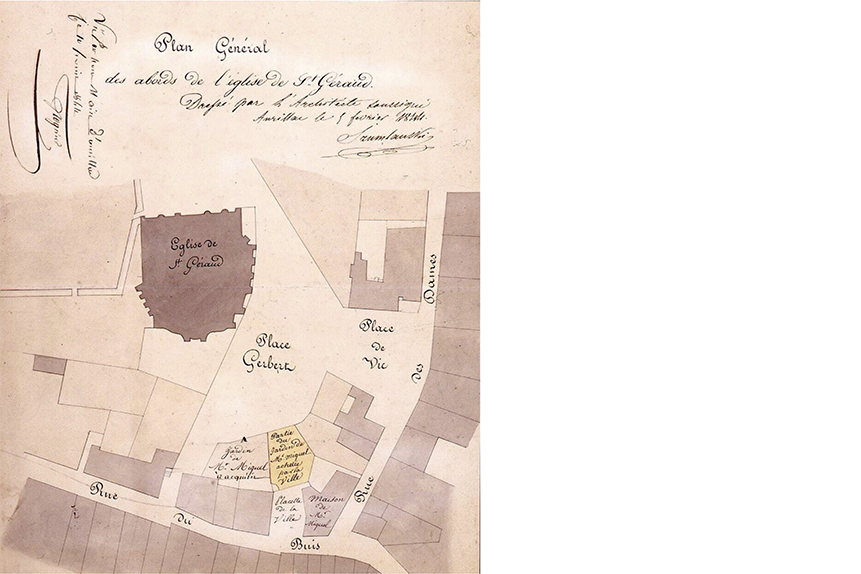 Plan Général
des abords de l'église de St Géraud.
Dressé par l'Architecte soussigné
Aurillac le 5 février
Eglise de
St Géraud
Place
Gerbert
Place
de
Vic
Rue des Dames
A
Jardin
de
Mr. Miquel
à acquérir
Partie
du
Jardin de
Mr Miquel
achetée
par la
Ville
Placette
de la
Ville
Maison
de
Mr.
Miquel
Rue du Buis